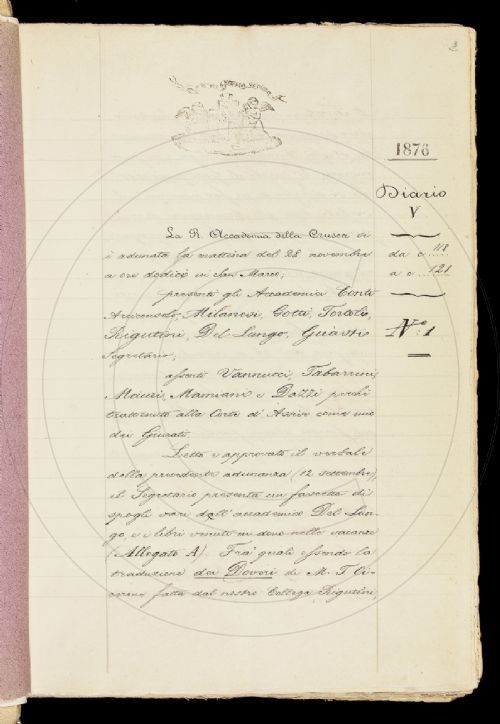 2
1876
Diario
V
da c. 118
a c. 121
N.o 1
La R. Accademia della Crusca si
è adunata la mattina del 28 novembre
a ore dodici in San Marco;
presenti gli Accademici Conti
Arciconsolo, Milanesi, Gotti, Tortoli,
Rigutini, Del Lungo, Guasti
Segretario;
assenti Vannucci, Tabarrini,
Mauri, Mamiani e Dazzi perchè
trattenuto alla Corte d'Assise come uno
dei Giurati.
Letto e approvato il verbale
della precedente adunanza (12 settembre)
il Segretario presenta un fascetto di
spogli vari dell'accademico Del Lun-
go, e i libri venuti in dono nelle vacanze
(Allegato A). Fra' quali essendo la
traduzione dei Doveri di M. T. Ci-
cerone fatta dal nostro Collega Rigutini,